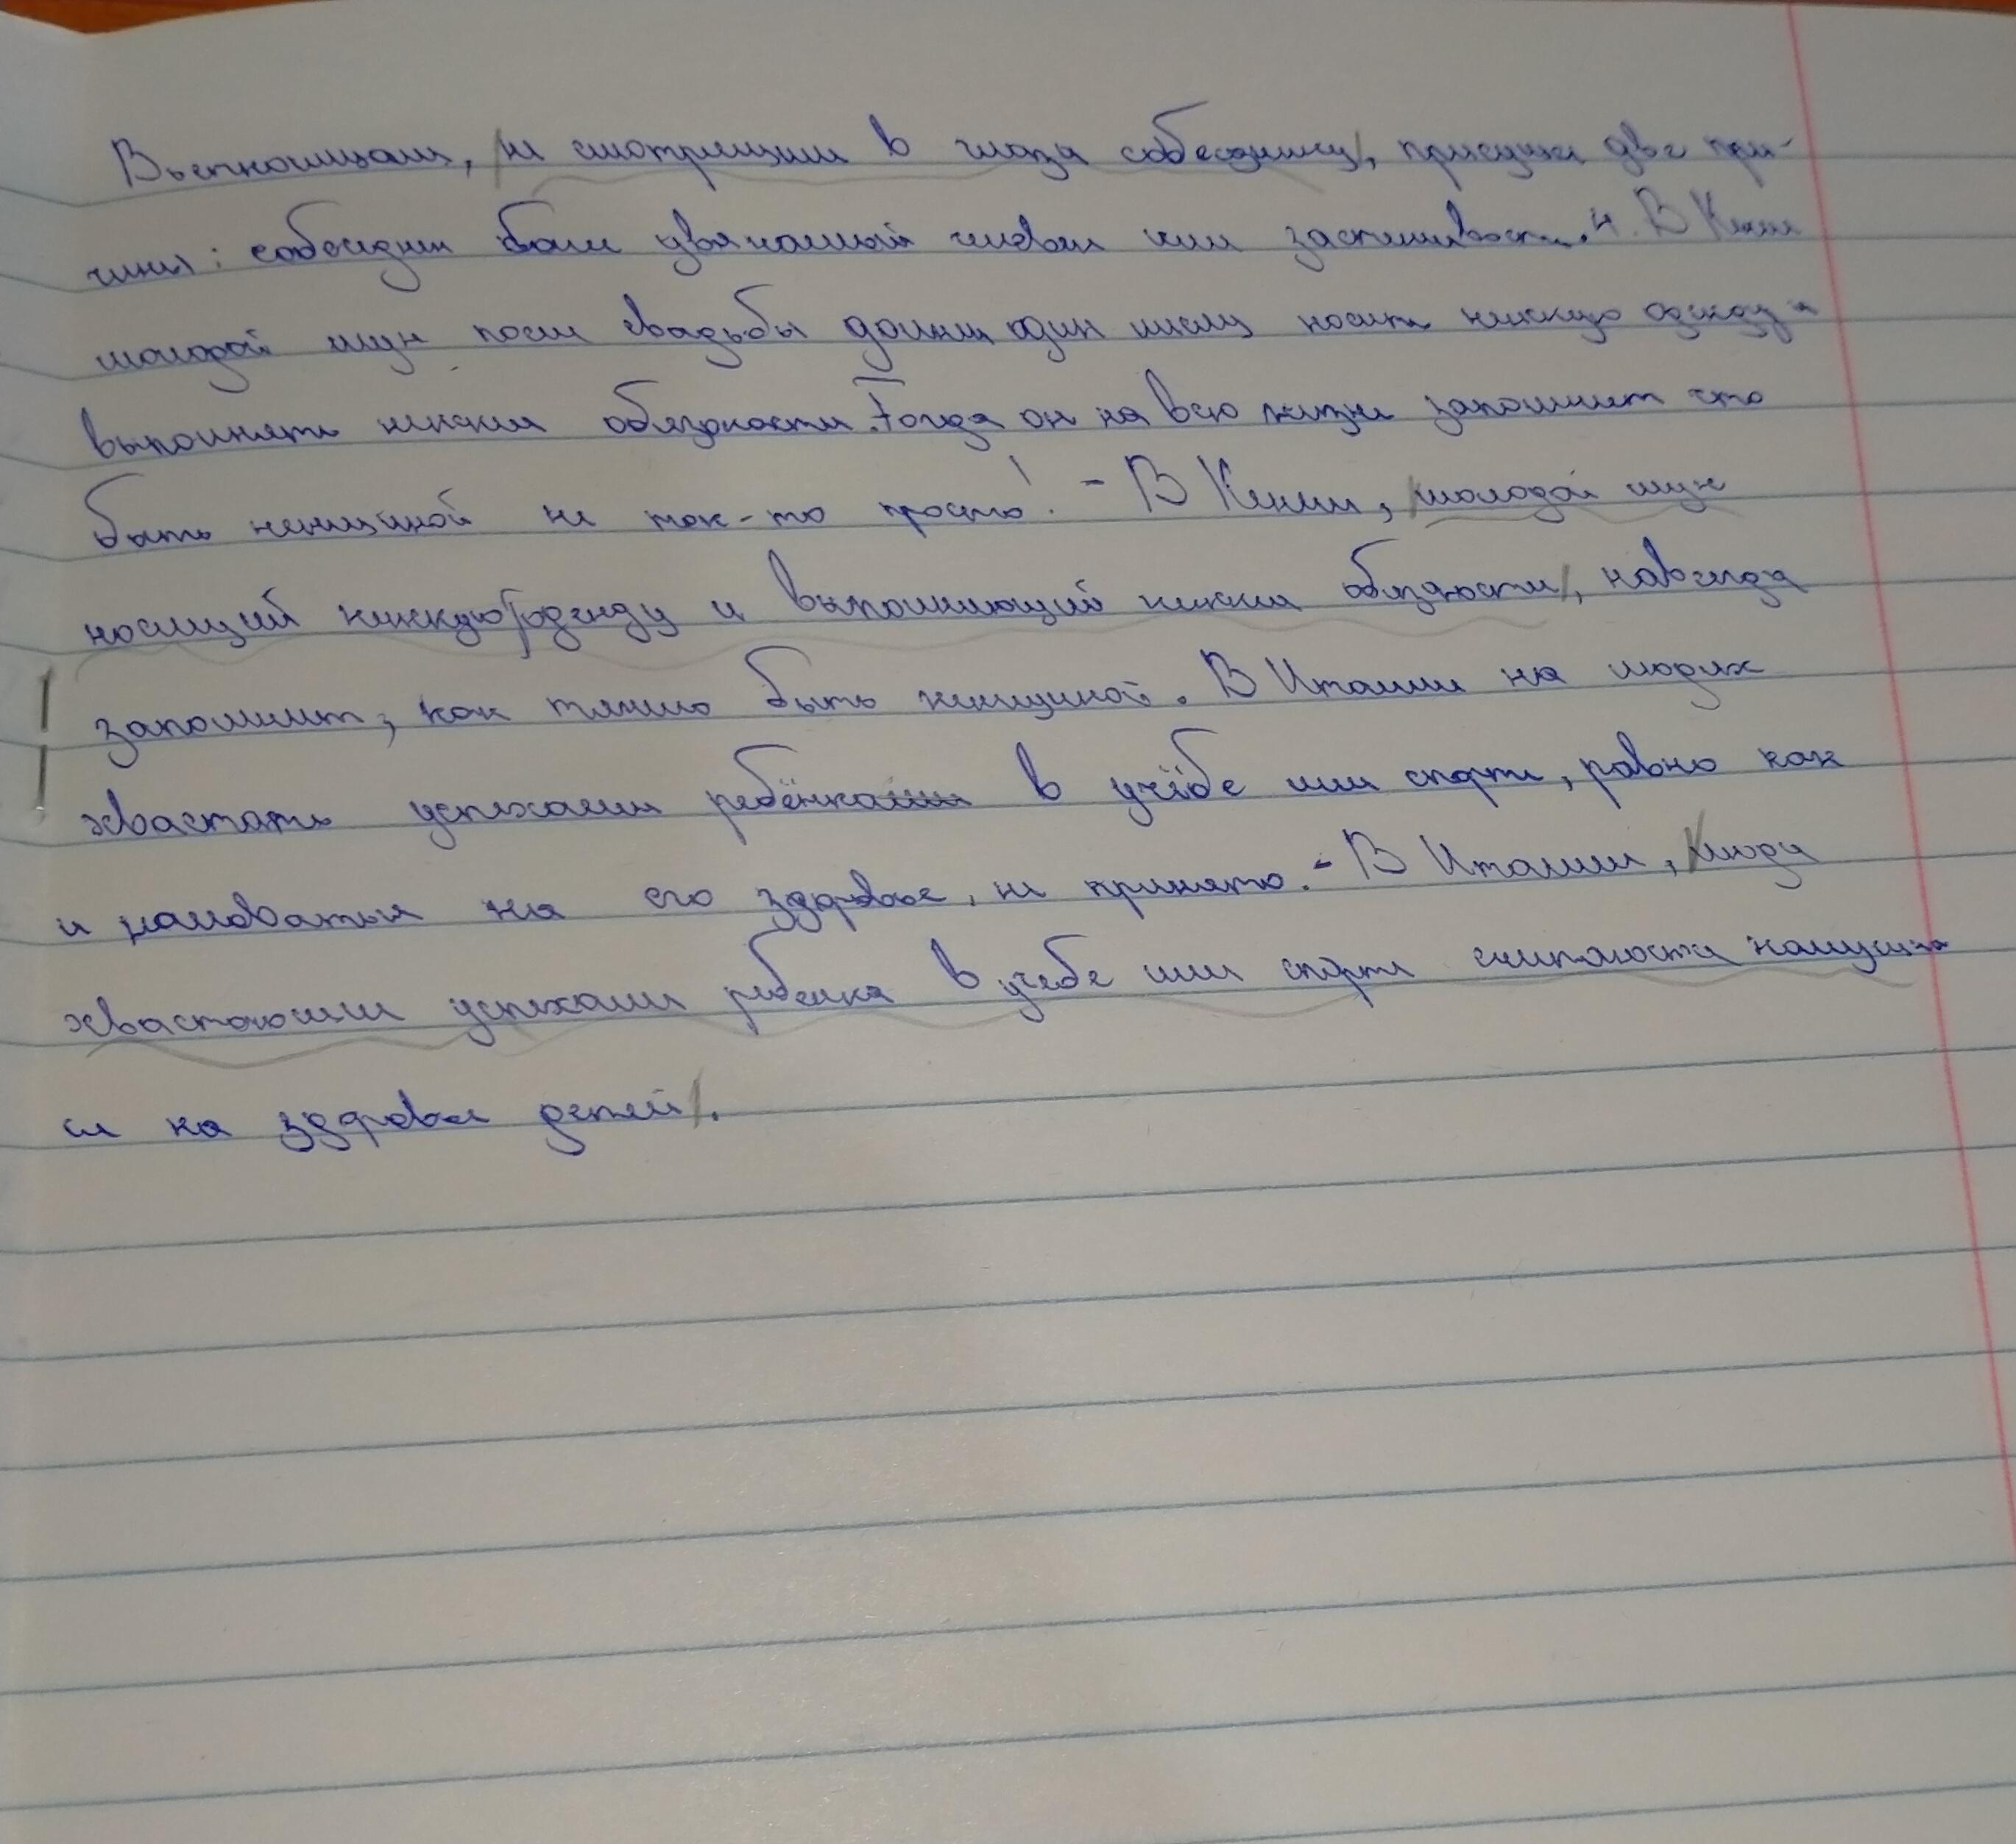 Вьетномцам, не смотрящим в глаза собеседнику, присущи две при-
чины: собеседник более уважаемый человек или застенчивость. 4. В Кении
молодой муж после свадьбы должен один месяц носить женскую одежду и
выполнять женские обязности. Тогда он на всю жизнь запомнит что
быть женщиной не так-то просто! - В Кении, молодой муж
носящий женскую одежду и выполняющий женские обязности, навсегда
запомнит, как тяжело быть женщиной. В Италии на людях
хвастать успехами ребёнка в учёбе или спорте, равно как
и жаловаться на его здоровье, не принято. - В Италии, люди
хвастающие успехами ребенка в учебе или спорте жалующие
ся на здоровье детей.